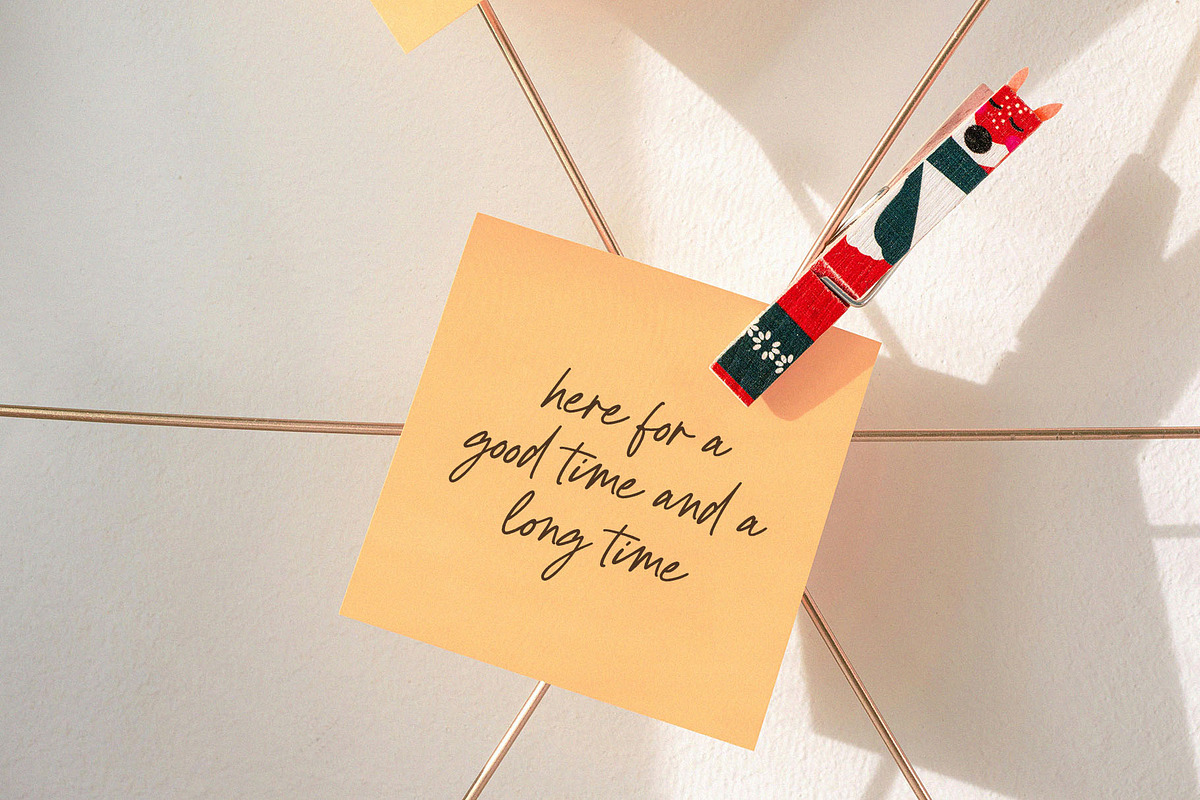 here for a
good time and a
long time